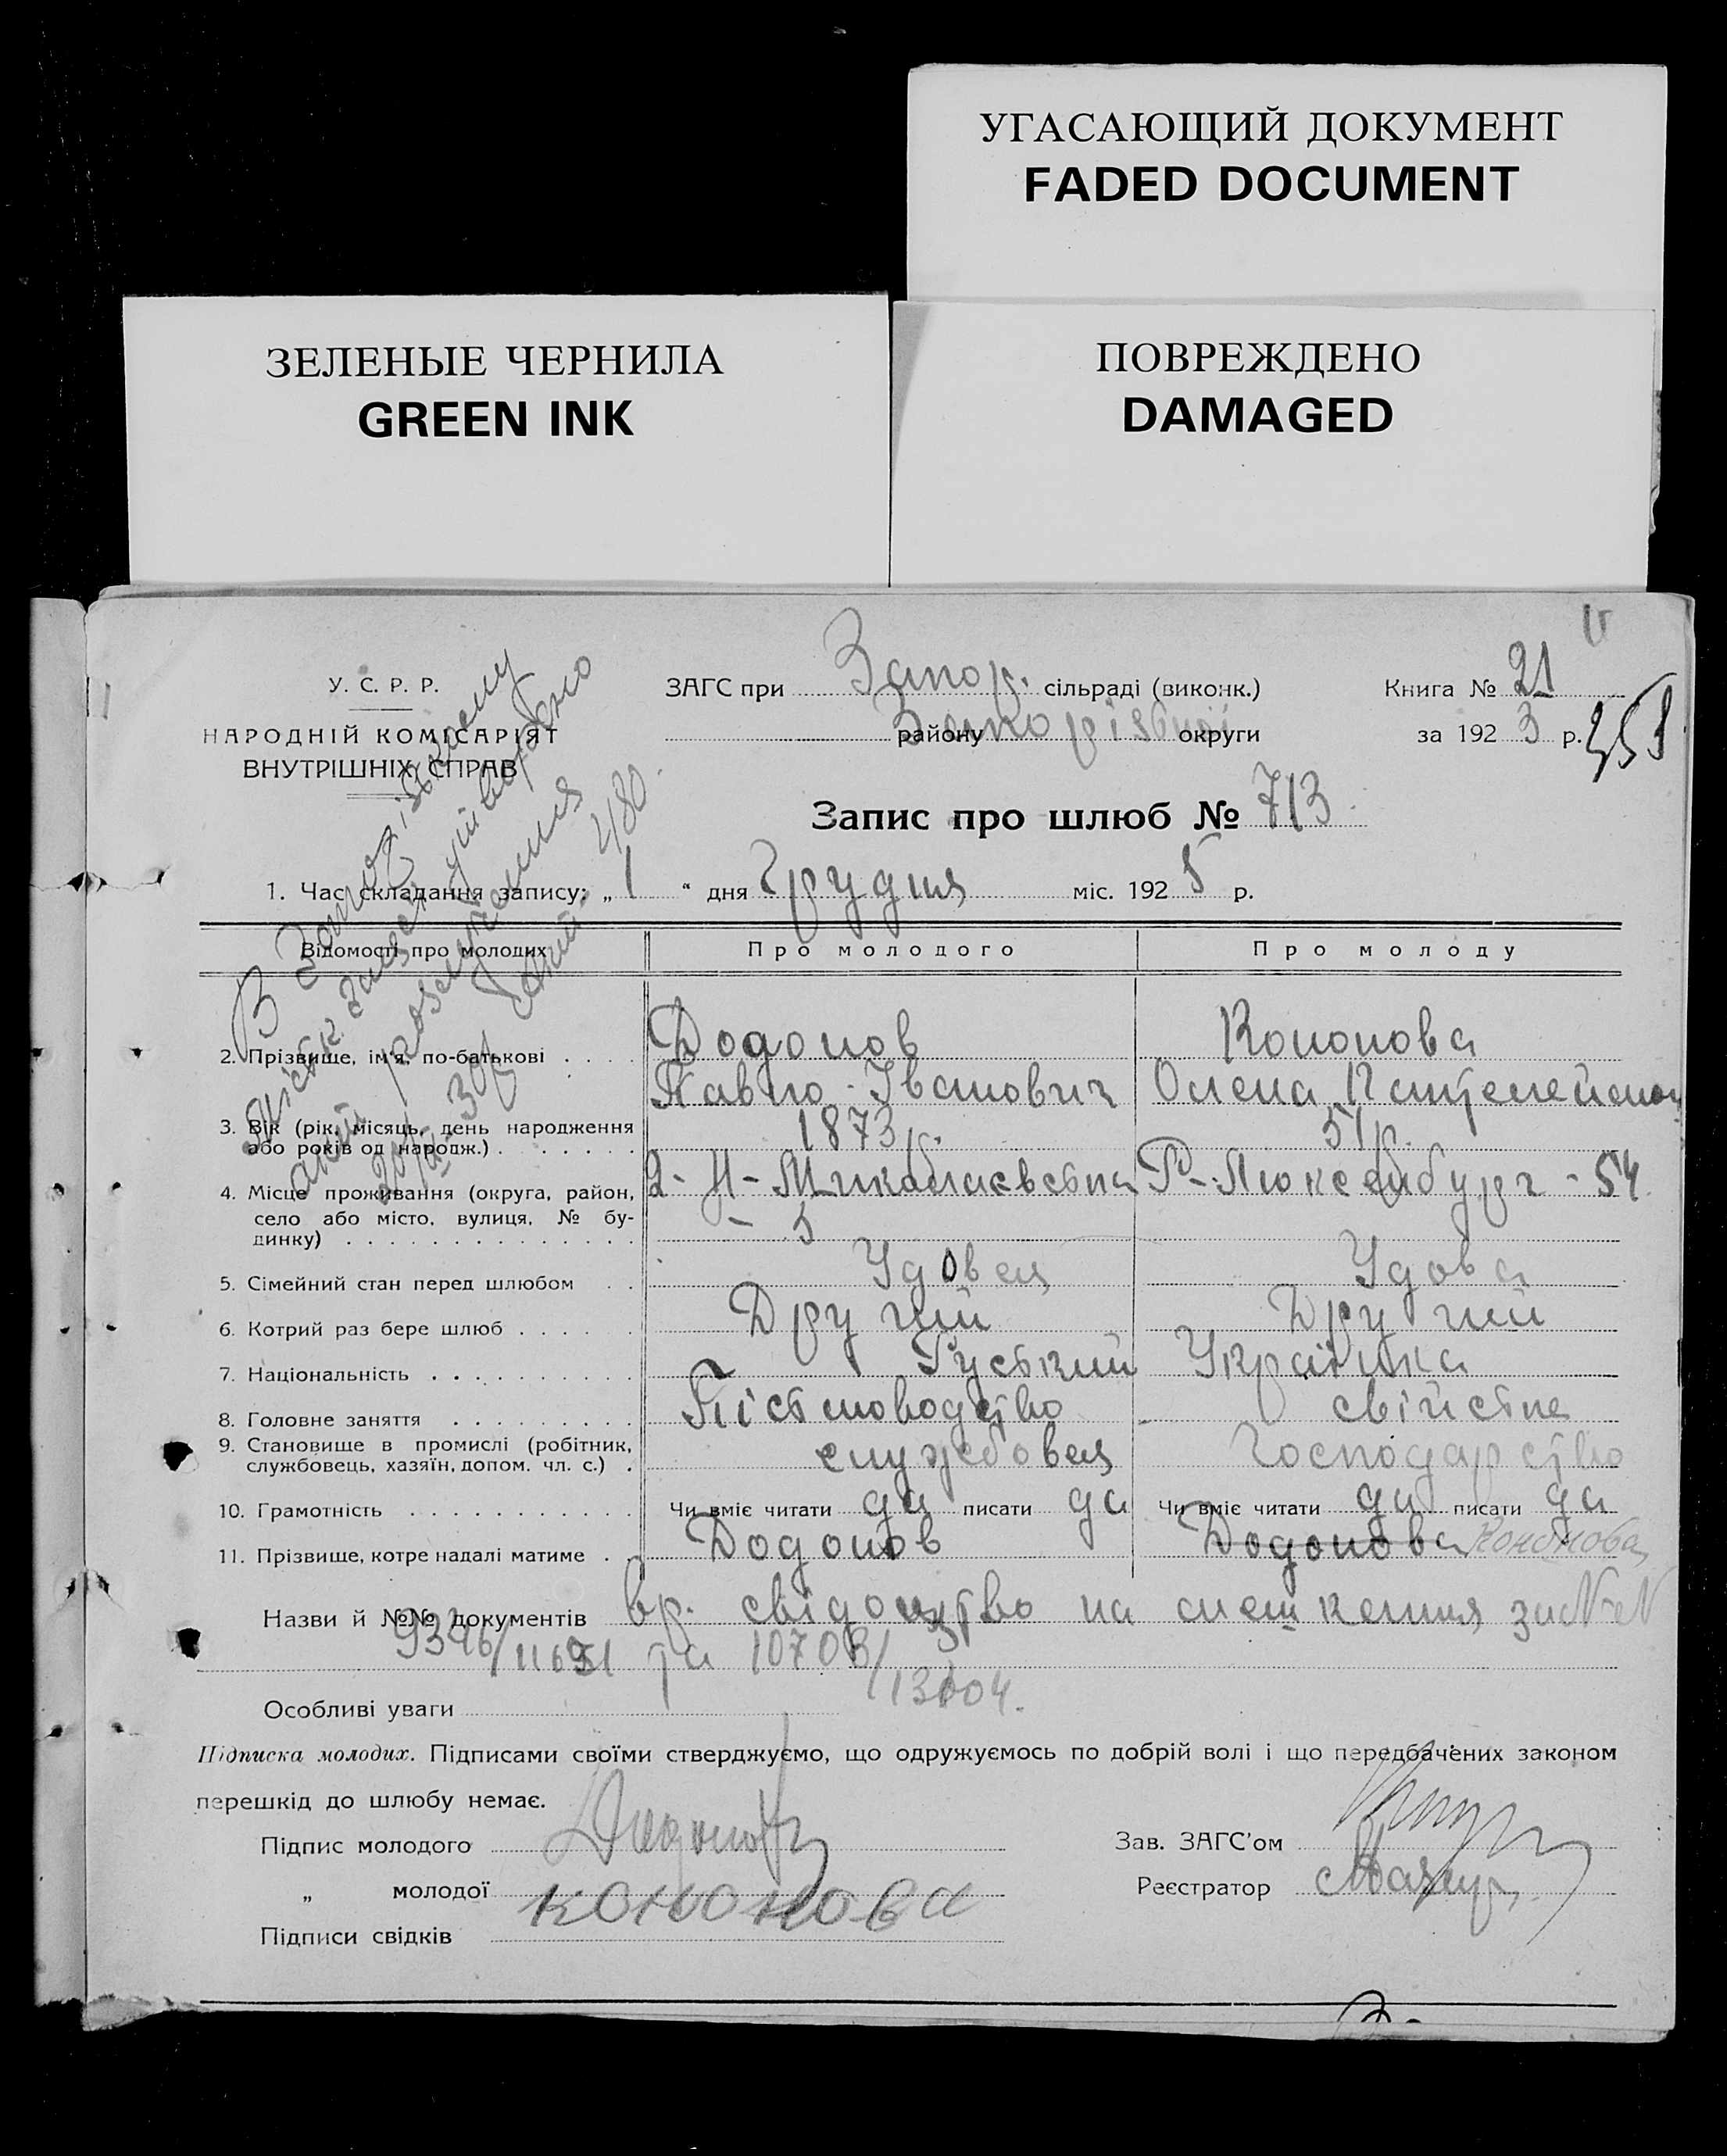 УГАСАЮЩИЙ ДОКУМЕНТ
FADED DOCUMENT
ЗЕЛЕНЫЕ ЧЕРНИЛА
GREEN INK
ПОВРЕЖДЕНО
DAMAGED
У. С. Р. Р.
НАРОДНІЙ КОМІСАРІЯТ
ВНУТРІШНІХ СПРАВ
ЗАГС при Запор. сільраді (виконк.)
району Запорізької округи
Книга № 21
за 1923 р.
353
Запис про шлюб № 713
1. Час складання запису: „ 1 “ дня Грудня міс. 1925 р.
Відомості про молодих Про молодого Про молоду
2. Прізвище, ім'я, по-батькові . . . . Додонов Кононова
Павло Іванович Олена
3. Вік (рік, місяць, день народження
або років од народж.) . . . . . . 1873 р. 51 р.
4. Місце проживання (округа, район,
село або місто, вулиця, № бу-
динку) . . . . . . . . . . . . . .
Р-Люксембург - 54
- 5
5. Сімейний стан перед шлюбом . . Удовец Удова
6. Котрий раз бере шлюб . . . . . Другий Другий
7. Національність . . . . . . . . . . Руський Українка
8. Головне заняття . . . . . . . . . свійстне
9. Становище в промислі (робітник,
службовець, хазяїн, допом. чл. с.) . службовец господарство
10. Грамотність . . . . . . . . . . . Чи вміє читати да писати да Чи вміє читати да писати да
11. Прізвище, котре надалі матиме . Додонов Додонова Кононова
Назви й №№ документів вр. свідоцтво на смешкення за №№
9346/11651 та 10708/13104.
Особливі уваги
Підписка молодих. Підписами своїми стверджуємо, що одружуємось по добрій волі і що передбачених законом
перешкід до шлюбу немає.
Підпис молодого Додонов
„ молодої кононова
Підписи свідків
Зав. ЗАГС'ом
Реєстратор